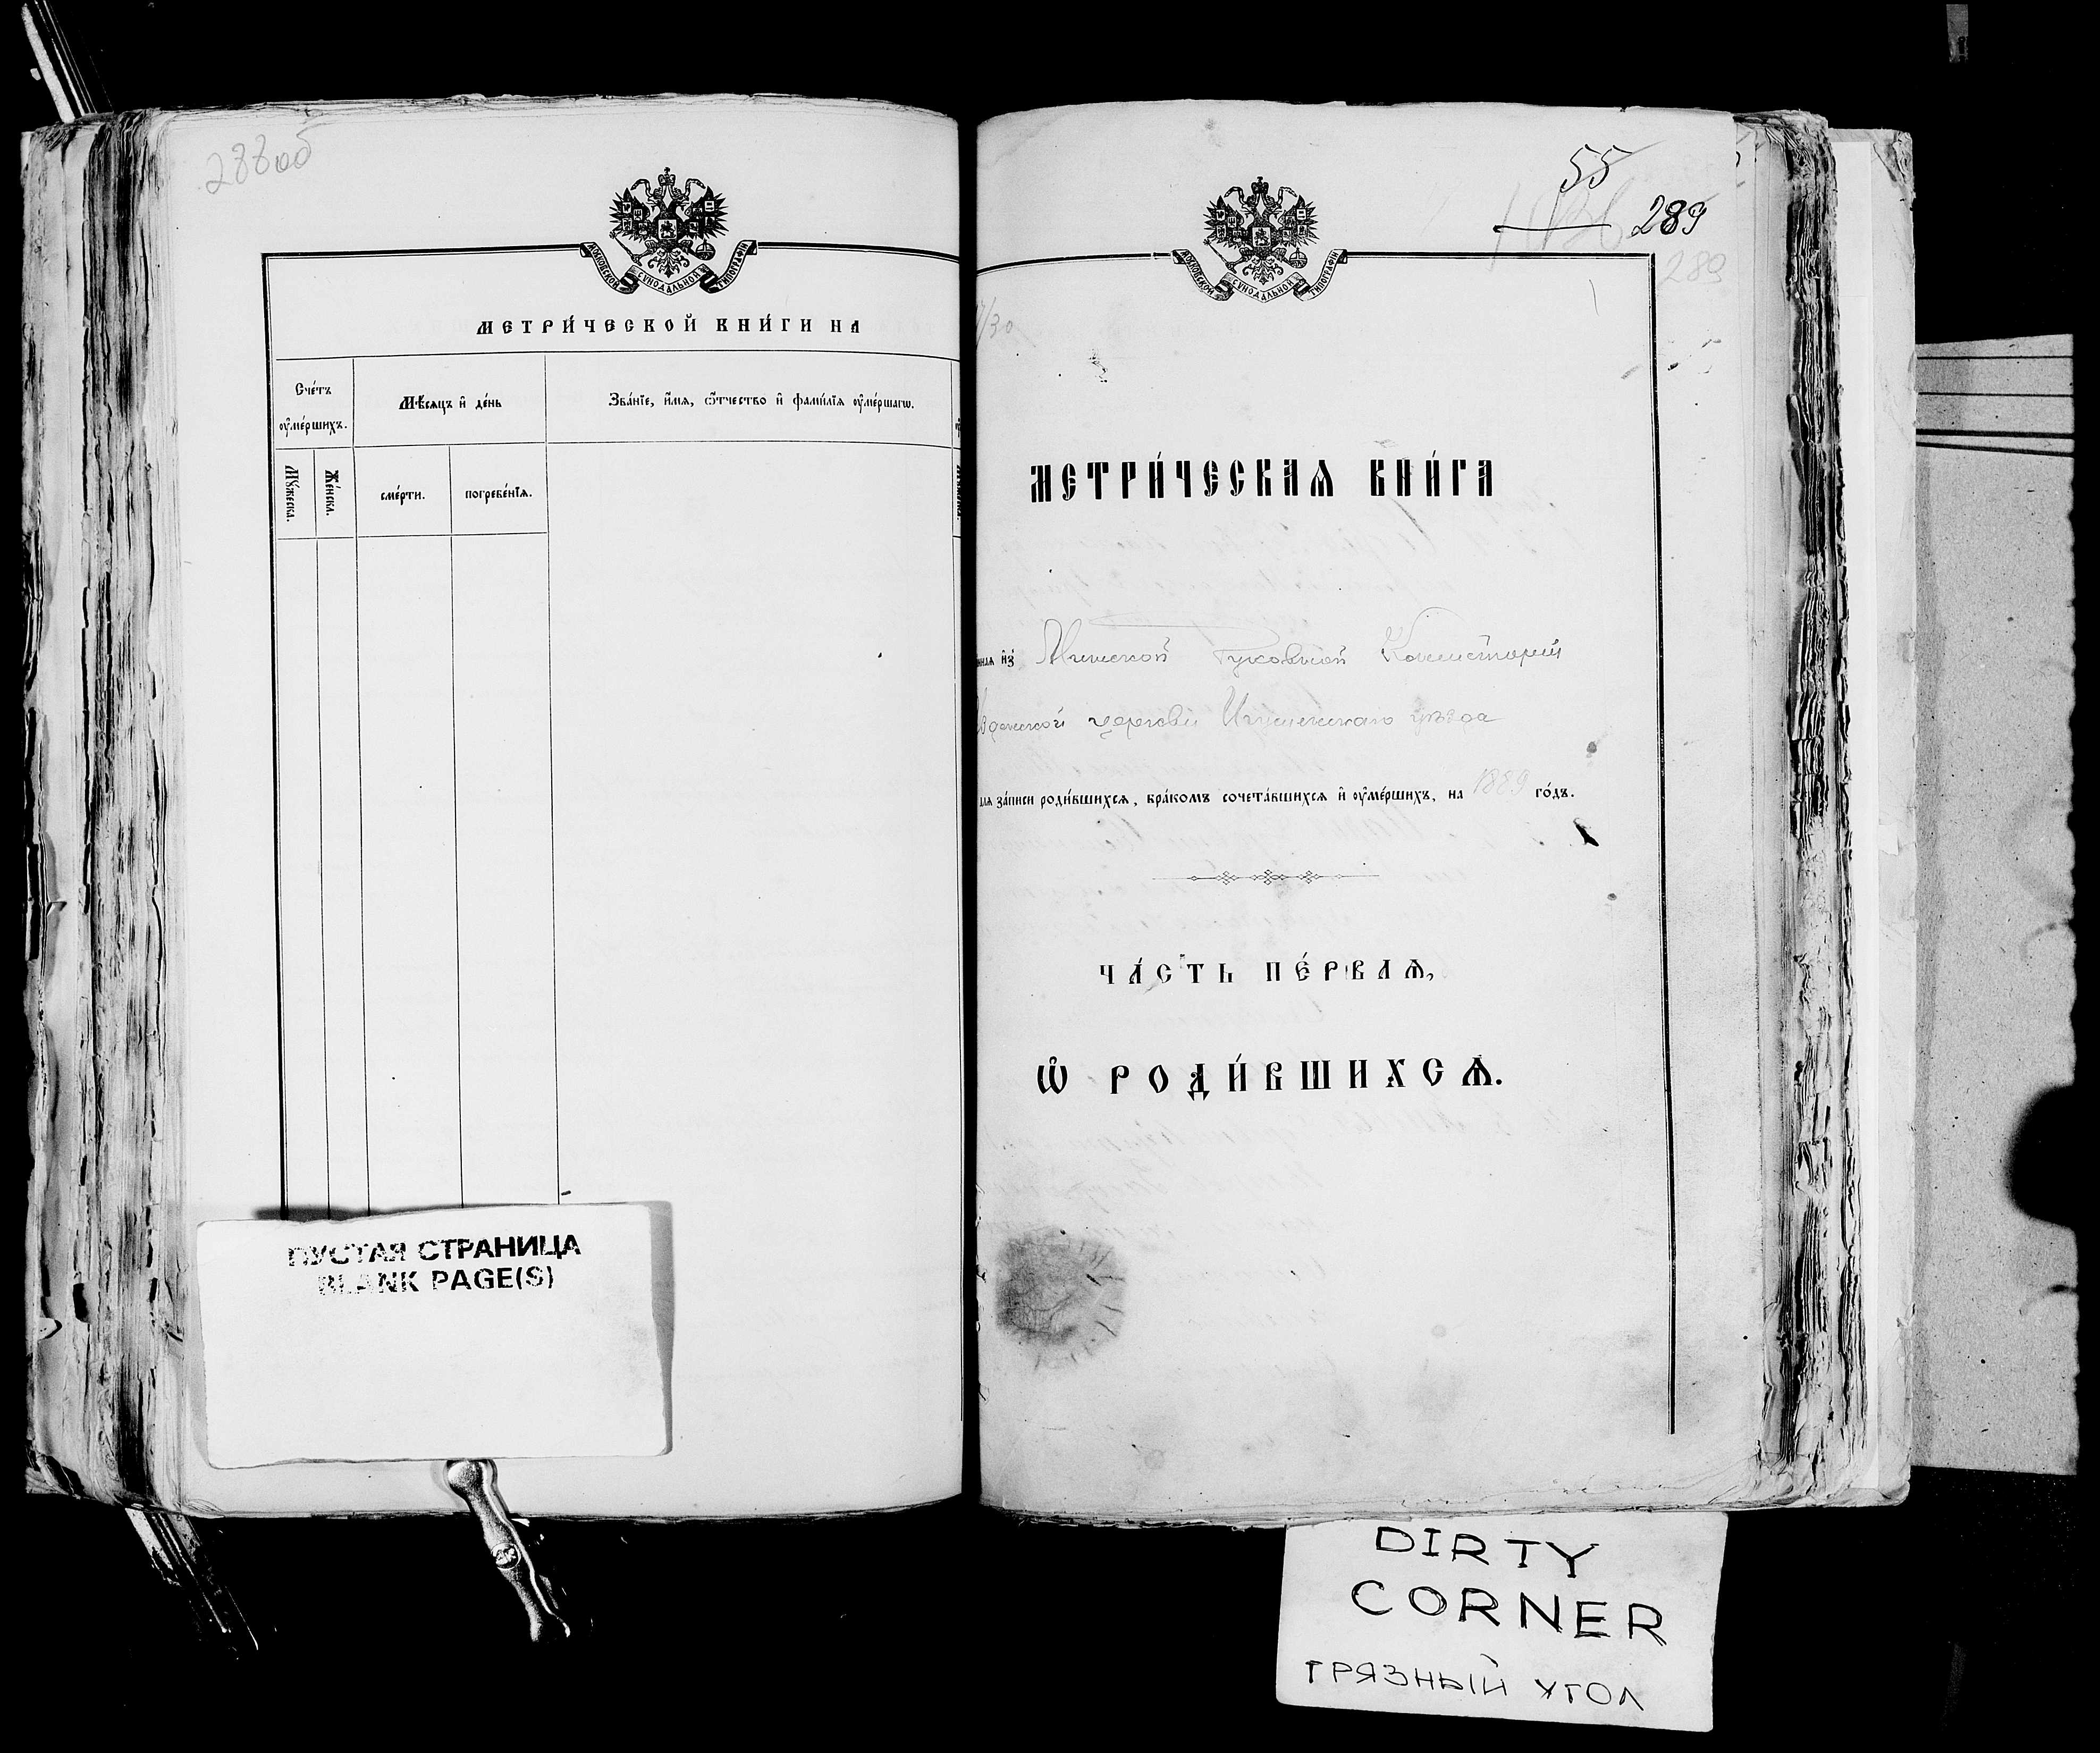 288 об
МОСКОВСКОЙ СѴНОДАЛЬНОЙ ТИПОГРАФІИ
МЕТРИ́ЧЕСКОЙ КНИ́ГИ НА
Сче́тъ ᲂу҆ме́ршихъ.
Мѣ́сяцъ и҆ де́нь
Зва́нїе, и҆́мѧ, ѻ҆́тчество и҆ фамѝлїѧ ᲂу҆ме́ршагѡ.
Мꙋ́жеска.
Же́нска.
сме́рти.
погребе́нїѧ.
ПУСТАЯ СТРАНИЦА
BLANK PAGE(S)
55
289
289
МОСКОВСКОЙ СѴНОДАЛЬНОЙ ТИПОГРАФІИ
/30
МЕТРИ́ЧЕСКАѦ КНИ́ГА
ннаѧ и҆з̾ Минской Духовной Консисторіи
церкви Игуменскаго уѣзда
длѧ за́писи роди́вшихсѧ, бра́комъ сочета́вшихсѧ и҆ ᲂу҆ме́ршихъ, на 1889 го́дъ.
ЧА́СТЬ ПЕ́РВАѦ,
Ѡ҆ РОДИ́ВШИХСѦ.
DIRTY
CORNER
ГРЯЗНЫЙ УГОЛ